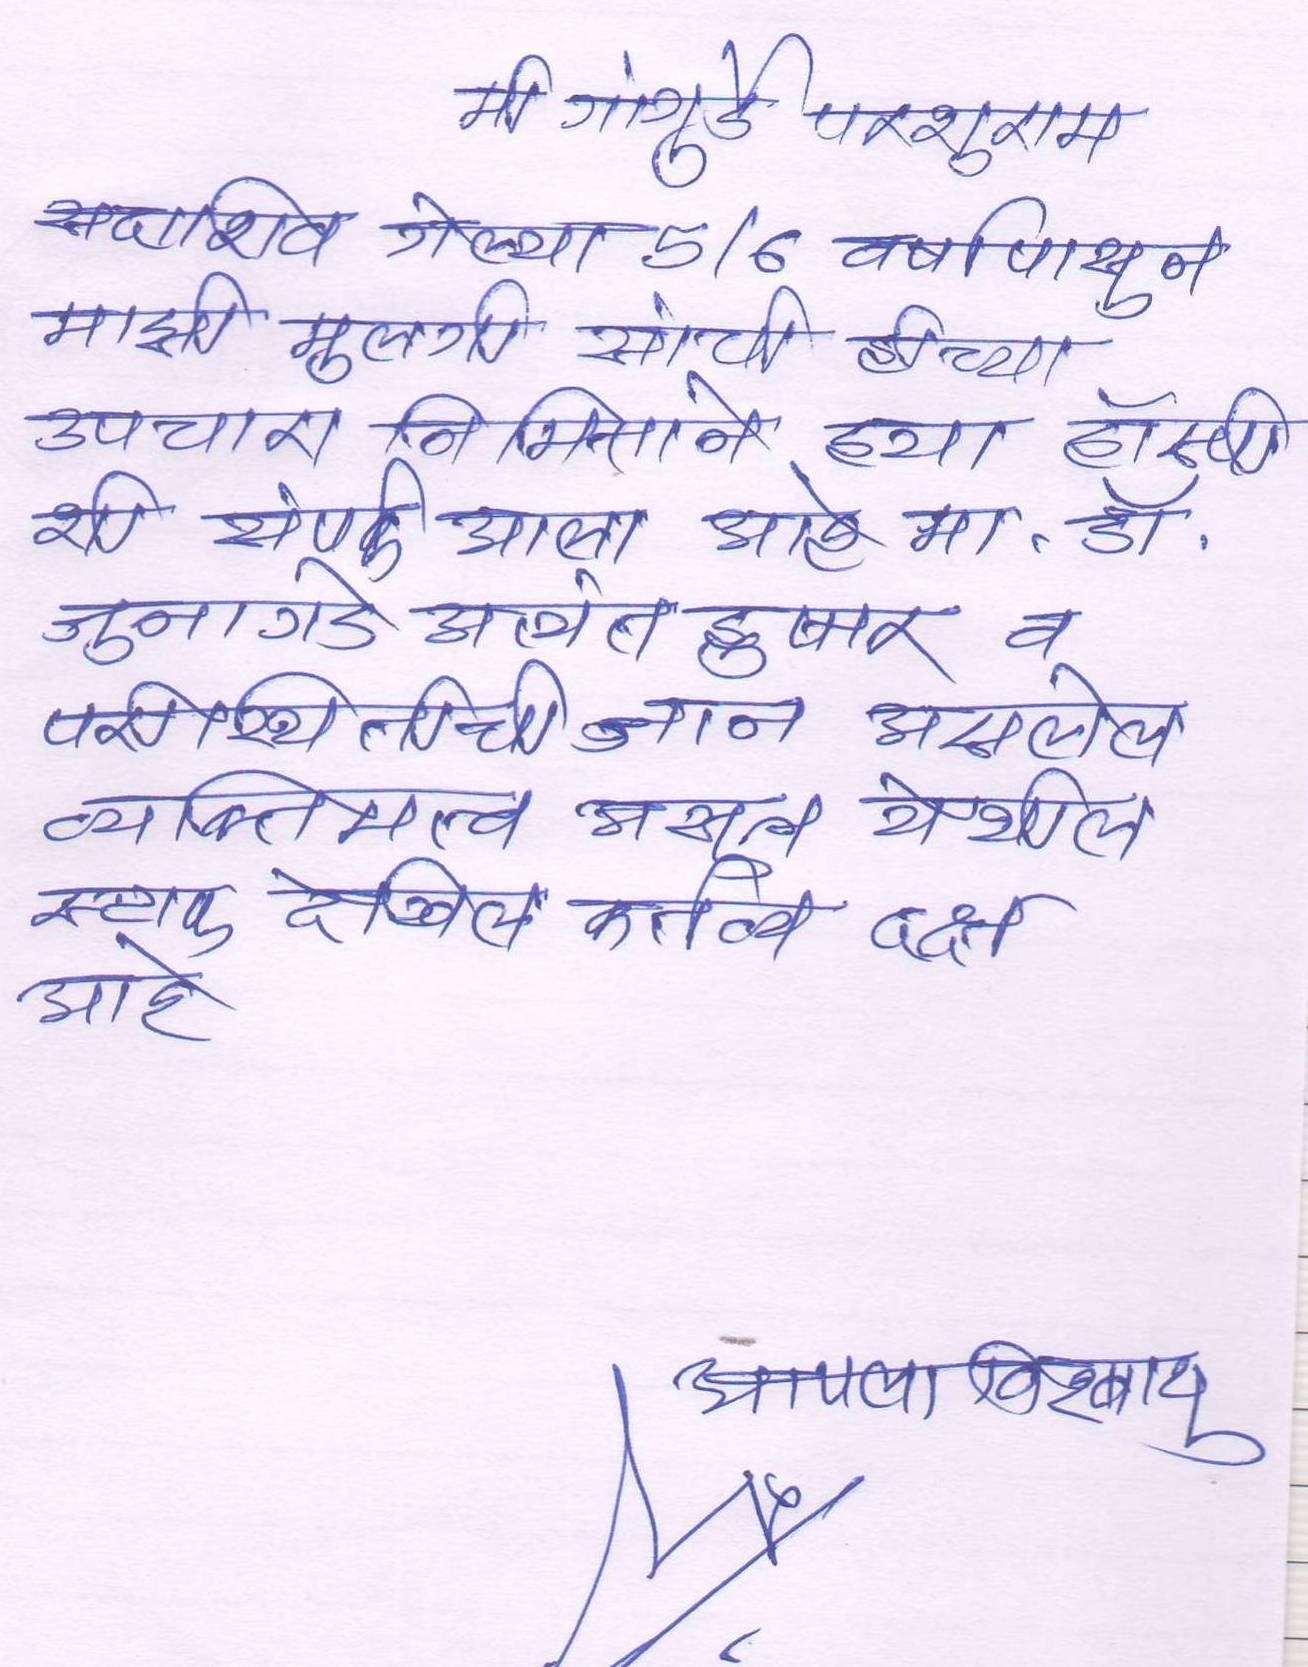 मी गांगुर्डे परशुराम
सदाशिव गेल्या 5/6 वर्षापासुन
माझी मुलगी सांची हीच्या
उपचारा निमित्ताने ह्या हॉस्पी
शी संपर्क आला आहे मा. डॉ.
जुनागडे अत्यंत हुषार व
परीस्थितीची जान असलेल
व्यक्तिमत्व असून येथील
स्टाफ देखिल कर्तव्य दक्ष
आहे
आपला विश्वासु